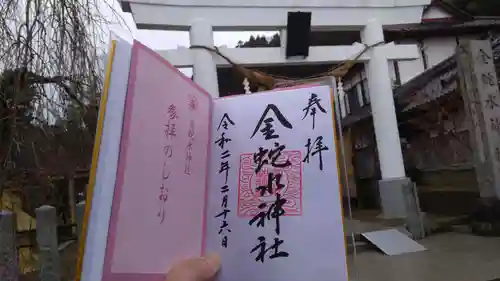 奉拝
金蛇水神社
令和二年二月十六日
金蛇水神社
参拝のしおり
金蛇水神社